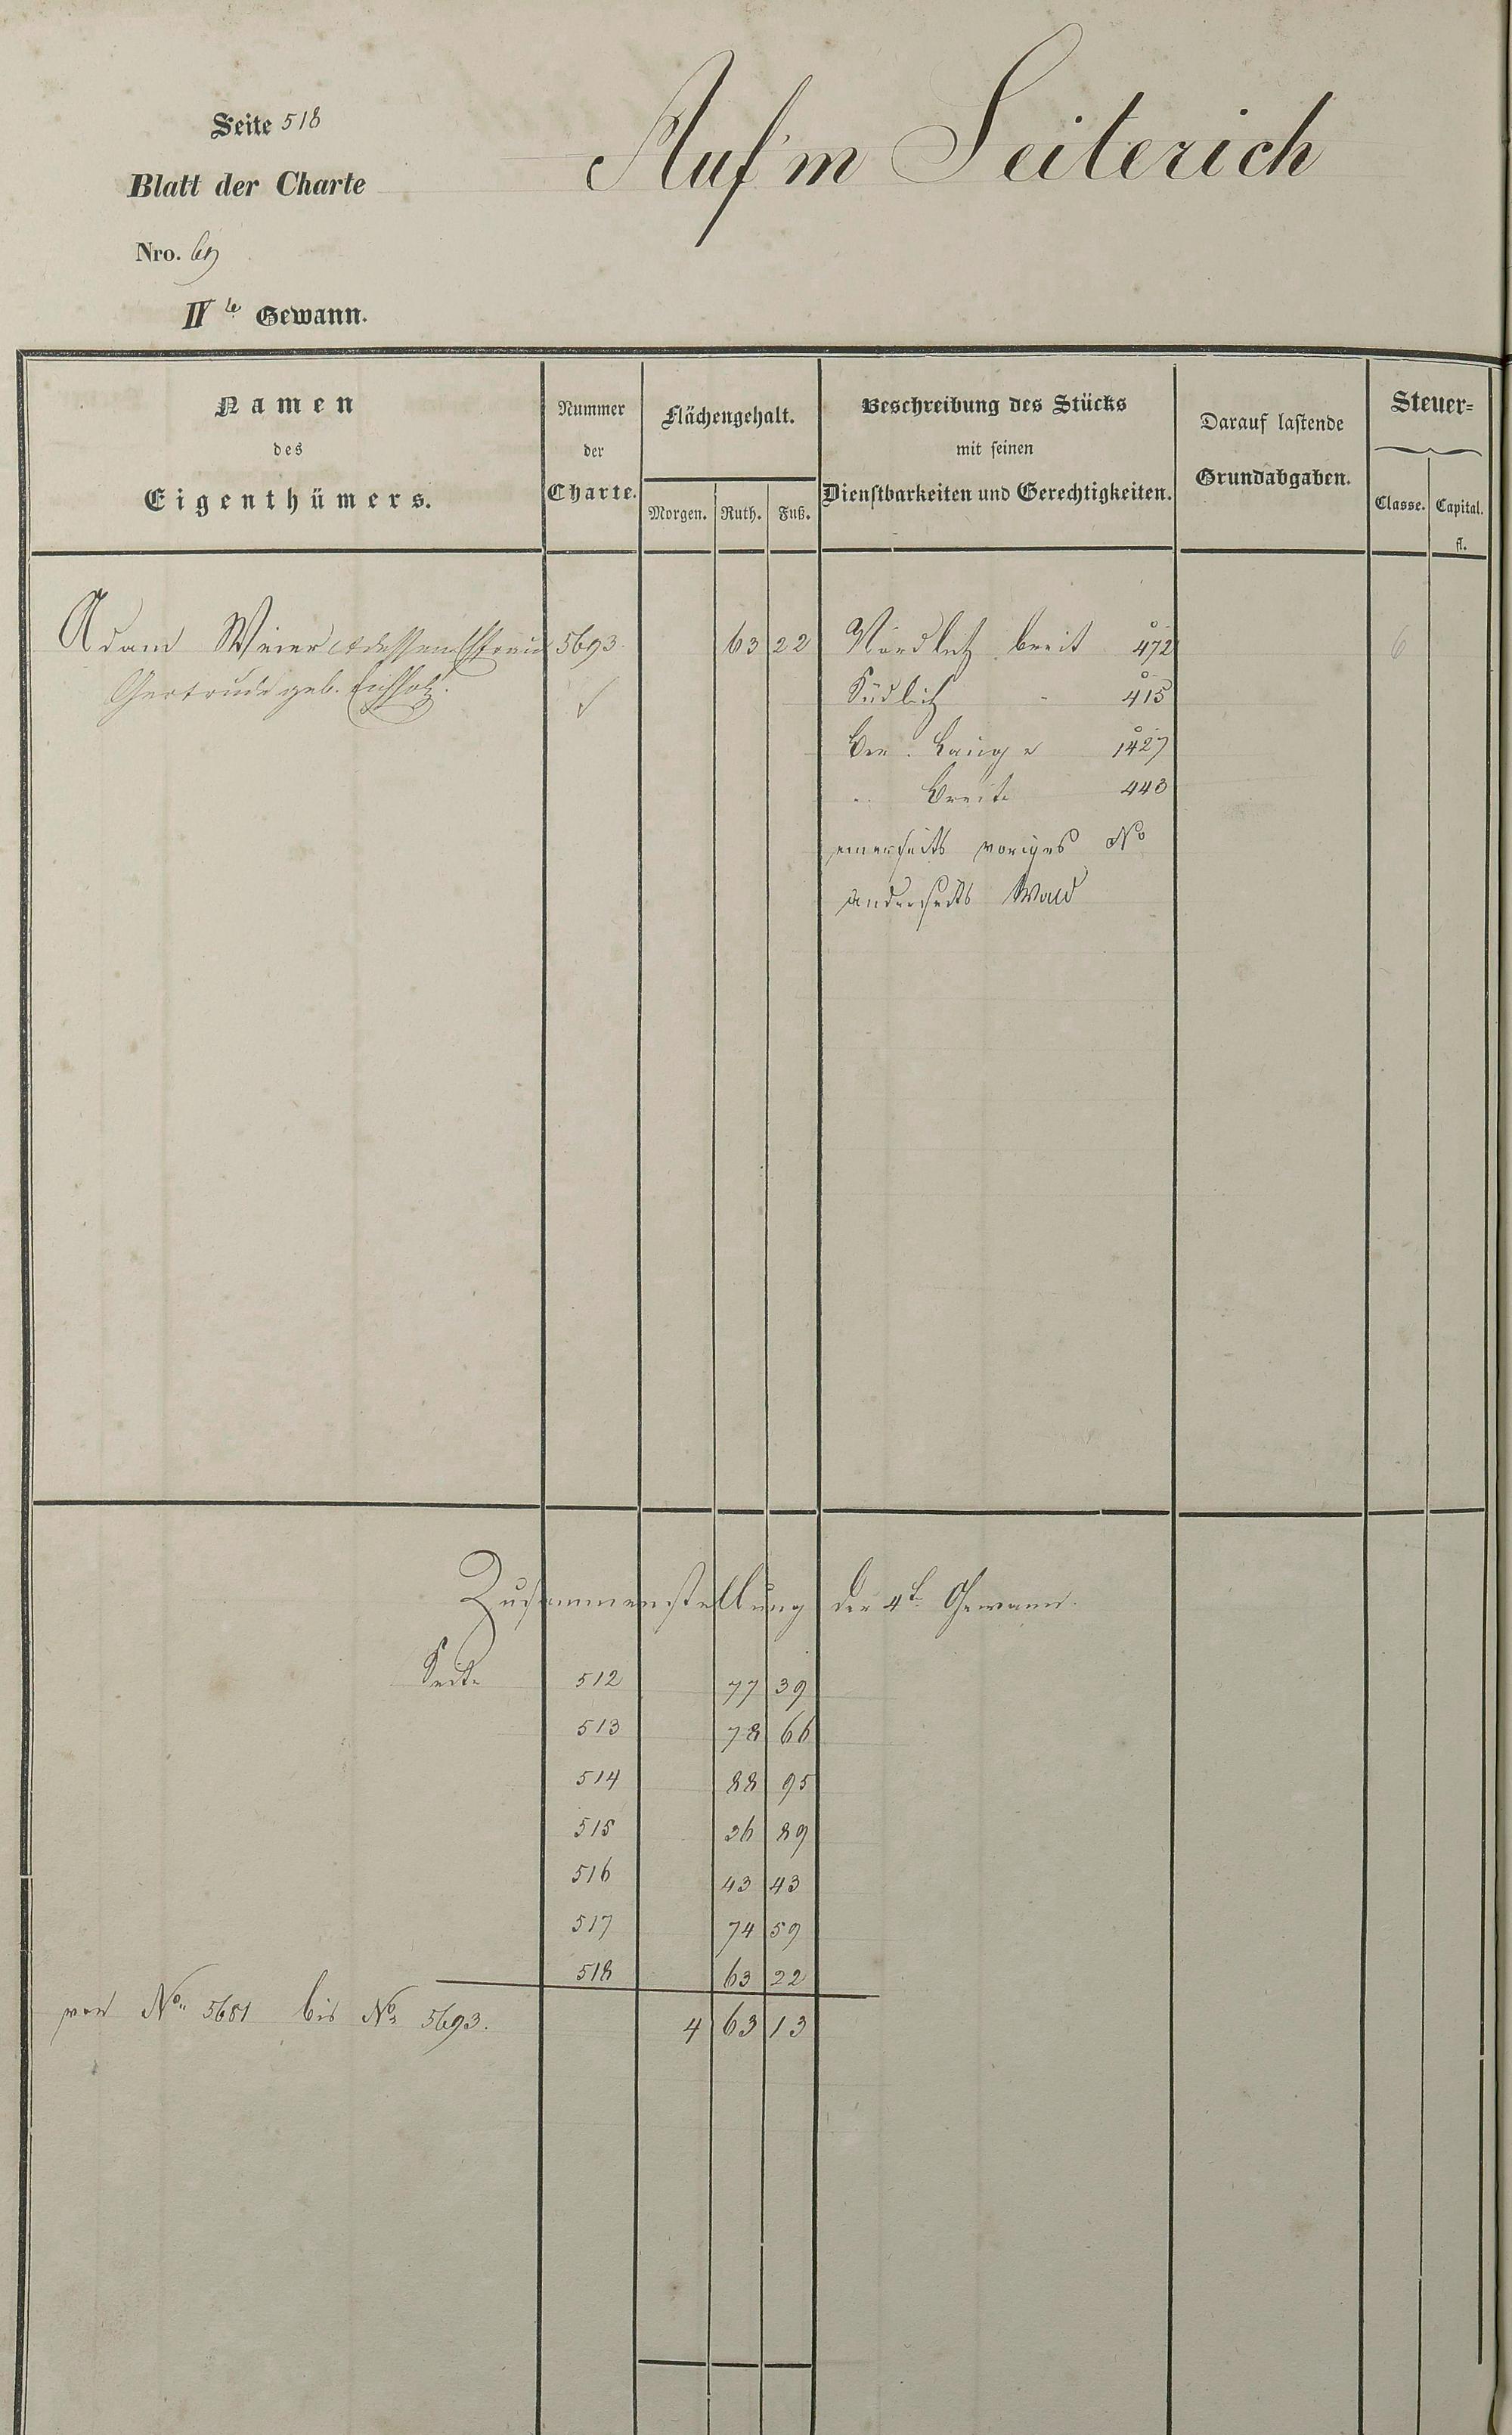 Seite 518
Auf'm Seiterich
Blatt der Charte
Nro. 69
IV te Gewann.
Namen
des
Eigenthümers.
Nummer
der
Charte.
Flächengehalt.
Morgen. Ruth. Fuß.
Beschreibung des Stücks
mit seinen
Dienstbarkeiten und Gerechtigkeiten.
Darauf lastende
Grundabgaben.
Steuer=
Classe. Capital.
fl.
Adam Weier dessen Ehefrau 5693 63 22 Nördlich breit 472 6
Gertrude geb. Eichholz. Südlich - 415
Ber. Länge 1427
" Breite 443
einerseits voriges No
anderseits Wald
Zusammenstellung der 4t. Gewann.
Seite 512 77 39
513 78 66
514 88 95
515 36 89
516 43 43
517 74 59
518 63 22
von No. 5681 bis No. 5693. 4 63 13